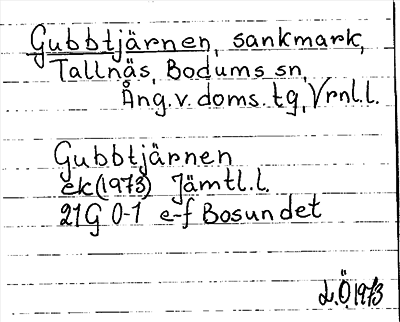 Gubbtjärnen, sankmark,
Tallnäs, Bodums sn,
Ång.v.doms.tg, Vrnl.l.
Gubbtjärnen
ek(1973) Jämtl.l.
21G 0-1 e-f Bosundet
L.Ö.1973